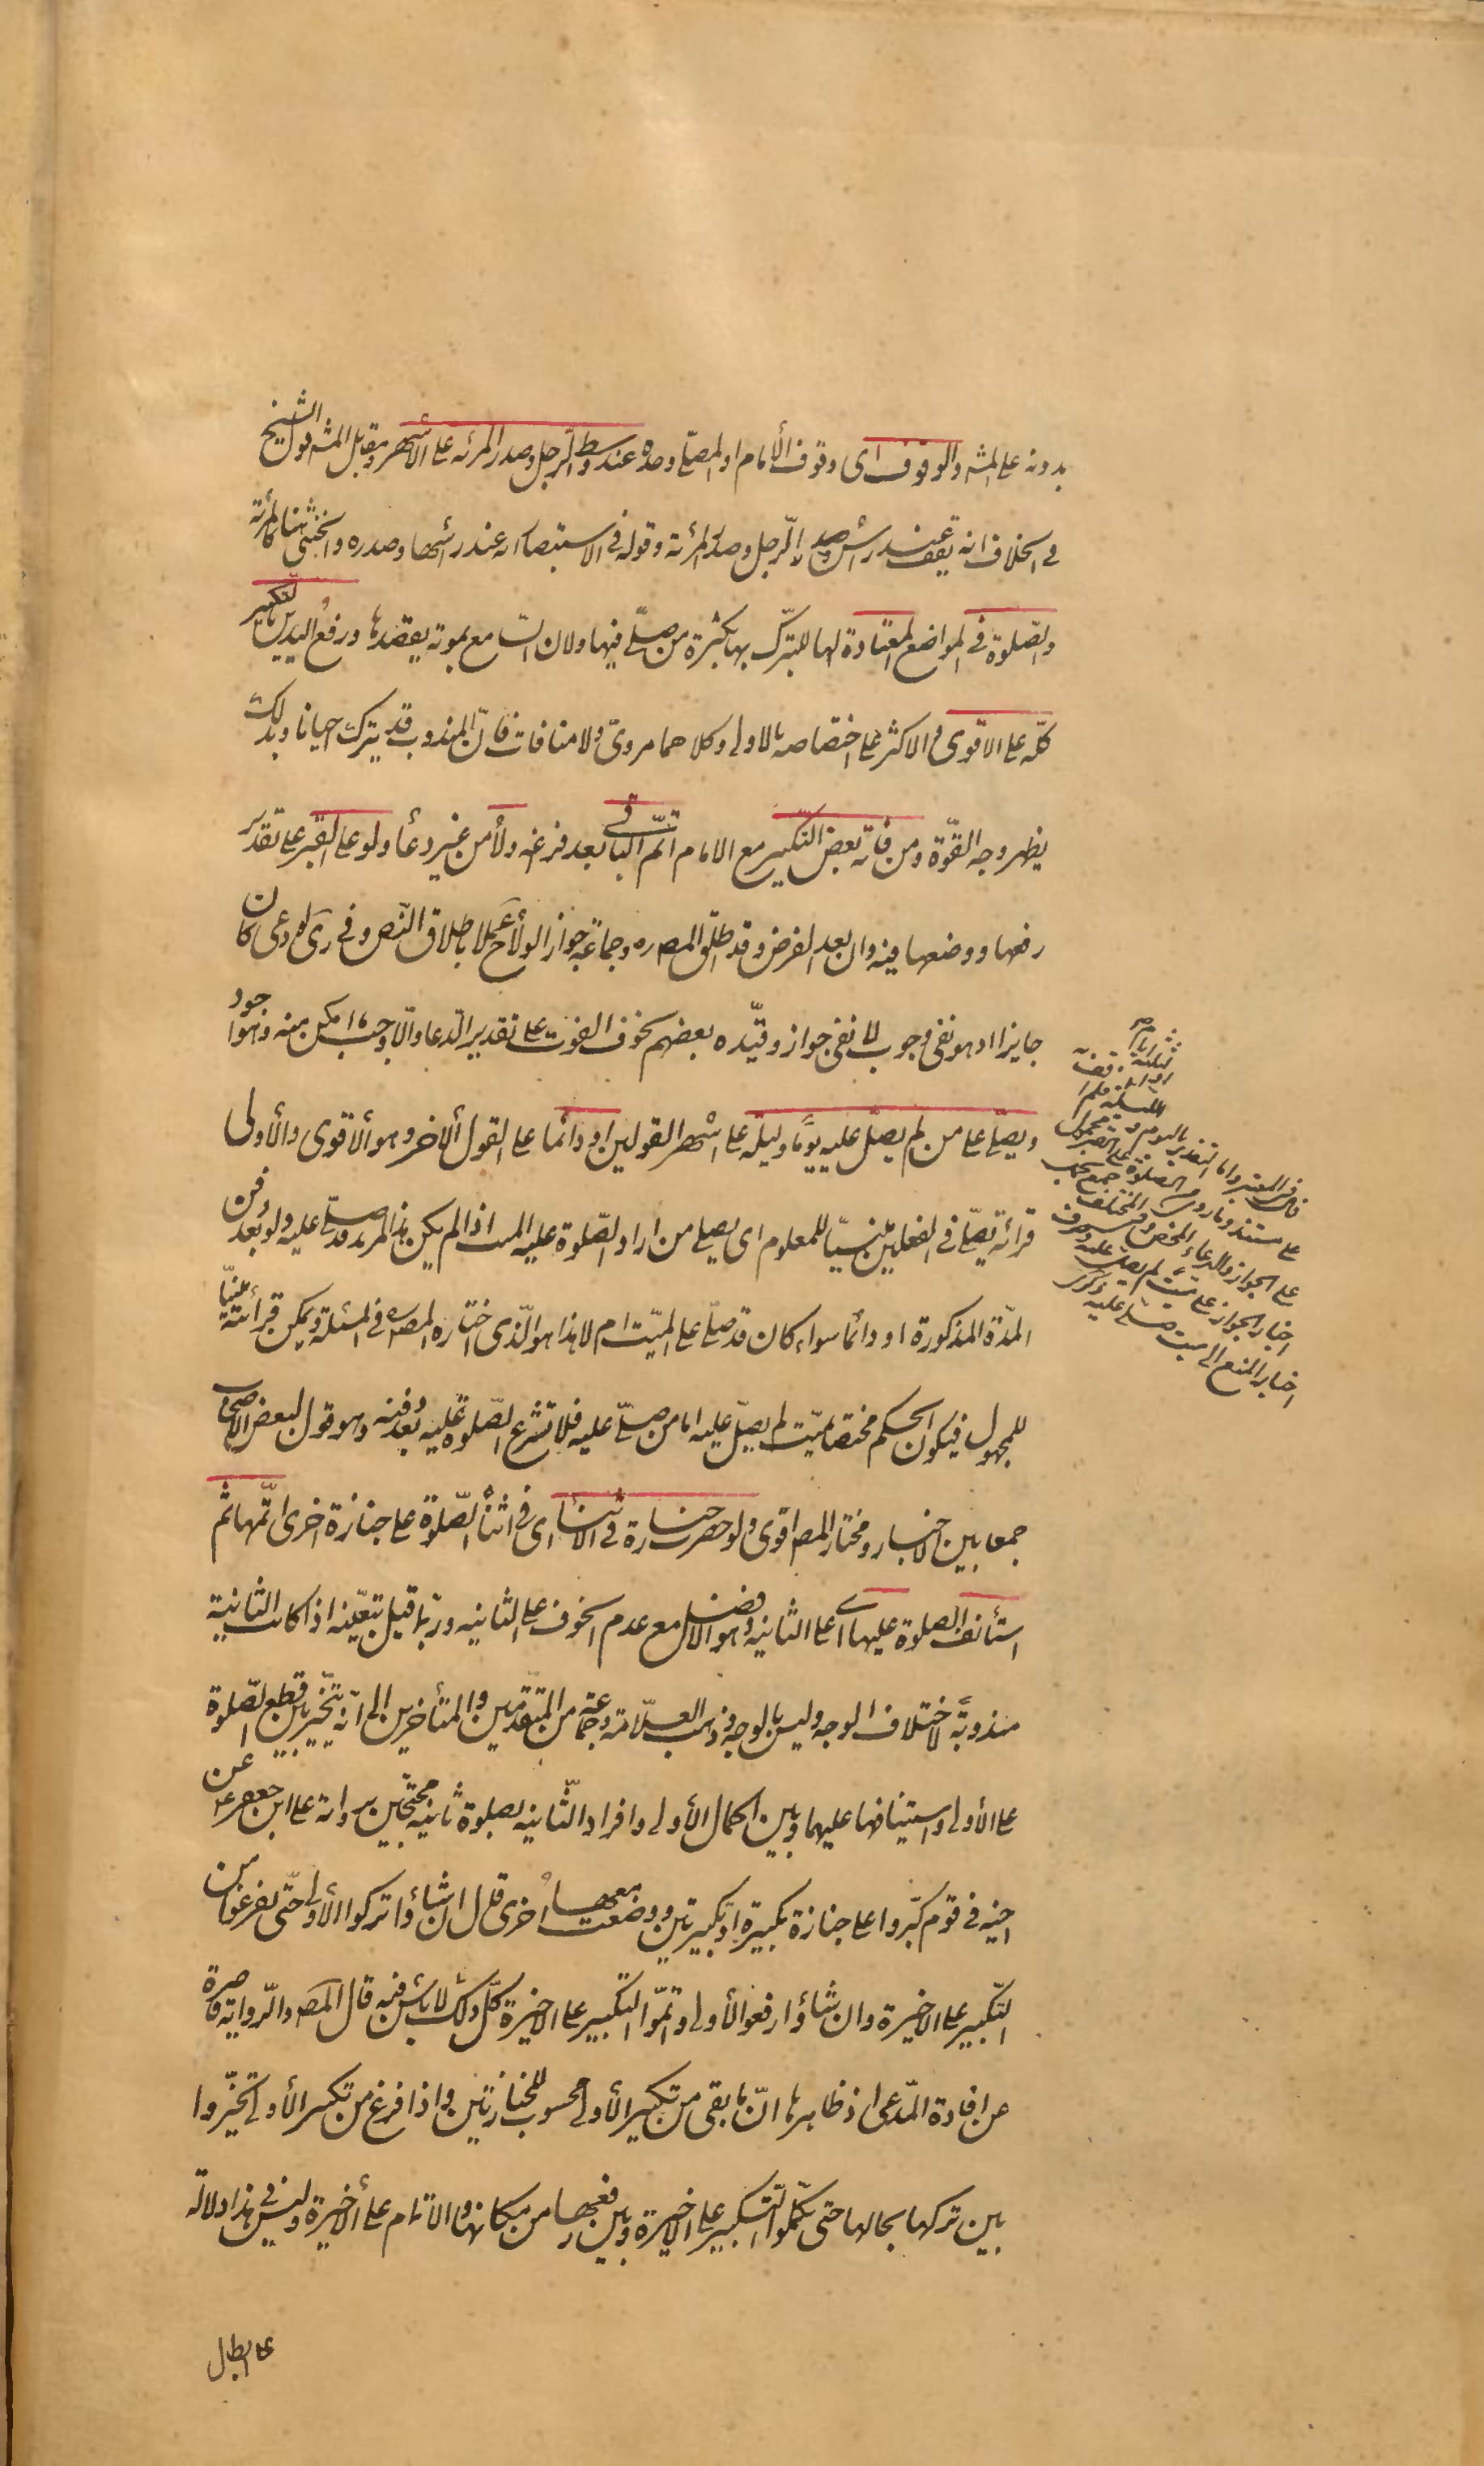 بدونه على المش والوقوف اى وقوف الأمام او المصلّى وحده عند وسط الرّجل وصدر المرئه على الأشهر ومقابل المش قول الشيخ
فى الخلاف انه يقف عند رأس الرّجل وصدر المرئة وقوله فى الاستبصار انه عند رأسها وصدره والخنثى هنا كالمرئة
والصّلوة فى المواضع المعتادة لها للتبرّك بها بكثرة من صلّى فيها ولان السّامع بموته يقصدها ورفع اليدين بالتكبير
كلّه على الاقوى والاكثر على اختصاصه بالاولى وكلاهما مروىّ ولا منافات فانّ المندوب قد يترك احيانا وبذلك
يظهر وجه القوّة ومن فاته بعض التكبير مع الامام اتمّ الباقى بعد فراغه ولاء من غير دعاء ولو على القبر على تقدير
رفعها ووضعها فيه وان بعد الفرض وقد اطلق المصره وجماعة جواز الولاء ح عملا باطلاق النّص وفى ذكرى لو دعى كان
جايزا اذ هو نفى وجوب لا نفى جواز وقيّده بعضهم بخوف الفوت على تقدير الدّعا والّا وجب ما امكن منه وهو اجود
ويصلّى على من لم يصلّ عليه يومًا وليلة على اشهر القولين او دائما على القول الأخر وهو الأقوى والأولى
قرائة يصلّى فى الفعلين مبنيّا للمعلوم اى يصلى من اراد الصّلوة على الميت اذا لم يكن هذا المريد قد صلّى عليه ولو بعد دفن
المدّة المذكورة او دائما سواء كان قد صلّى على الميّت ام لا هذا هو الّذى اختاره المصره فى المسئلة ويمكن قرائته مبنيّا
للمجهول فيكون الحكم مختصا بميّت لم يصلّ عليه اما من صلّى عليه فلا تشرع الصّلوة عليه بعد دفنه وهو قول لبعض الاصحاب
جمعا بين الاخبار ومختار المصر اقوى ولو حضر جنازة فى الأثناء اى فى اثناء الصّلوة على جنازة اخرى اتمّها ثم
استأنف الصلوة عليها اى على الثانيه وهو الافضل مع عدم الخوف على الثانيه وربّما قيل بتعيّنه اذا كانت الثانية
مندوبة لاختلاف الوجه وليس بالوجه وذهب العلّامة وجماعة من المتقدّمين والمتأخرين الى انّه يتخيّر بين قطع الصّلوة
على الأولى واستينافها عليهما وبين اكمال الأولى وافراد الثّانيه بصلوة ثانيه محتجّين برواية على ابن جعفر عن
اخيه فى قوم كبّروا على جنازة تكبيرة او تكبيرتين ووضعت معها اخرى قال ان شاؤا تركوا الأولى حتّى يفرغوا من
التّكبير على الاخيرة وان شاؤا رفعوا الأولى واتمّوا التكبير على الاخيرة كلّ ذلك لا باس فيه قال المصر والرّواية قاصرة
عن افادة المّدعى اذ ظاهرها انّ ما بقى من تكبير الأولى محسوب للجنازتين واذا فرغ من تكبير الأولى تخيّروا
بين تركها بحالها حتى يكمّلوا التّكبير على الاخيرة وبين رفعها من مكانها والاتمام على الأخيرة وليس فى هذا دلالة
على ابطال
على الجواز
اخبار الجواز على ميت لم يصلّ عليه
اخبار المنع الى ميت صلّى عليه